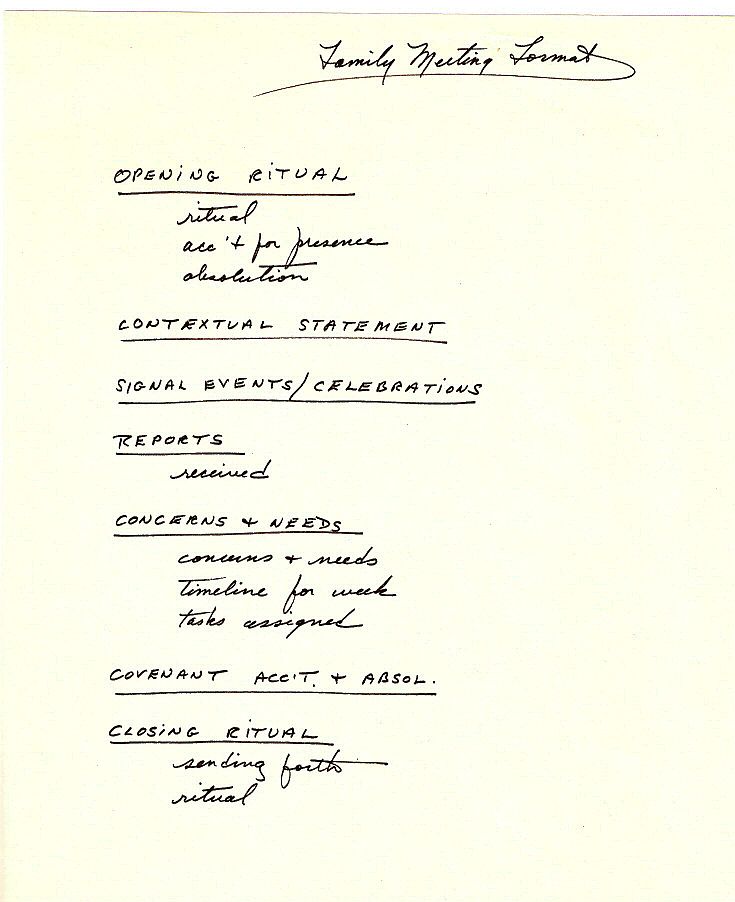 Family Meeting Format
OPENING RITUAL
ritual
acc't for presence
absolution
CONTEXTUAL STATEMENT
SIGNAL EVENTS/CELEBRATIONS
REPORTS
received
CONCERNS + NEEDS
concerns + needs
timeline for week
tasks assigned
COVENANT ACC'T. + ABSOL.
CLOSING RITUAL
sending forth
ritual